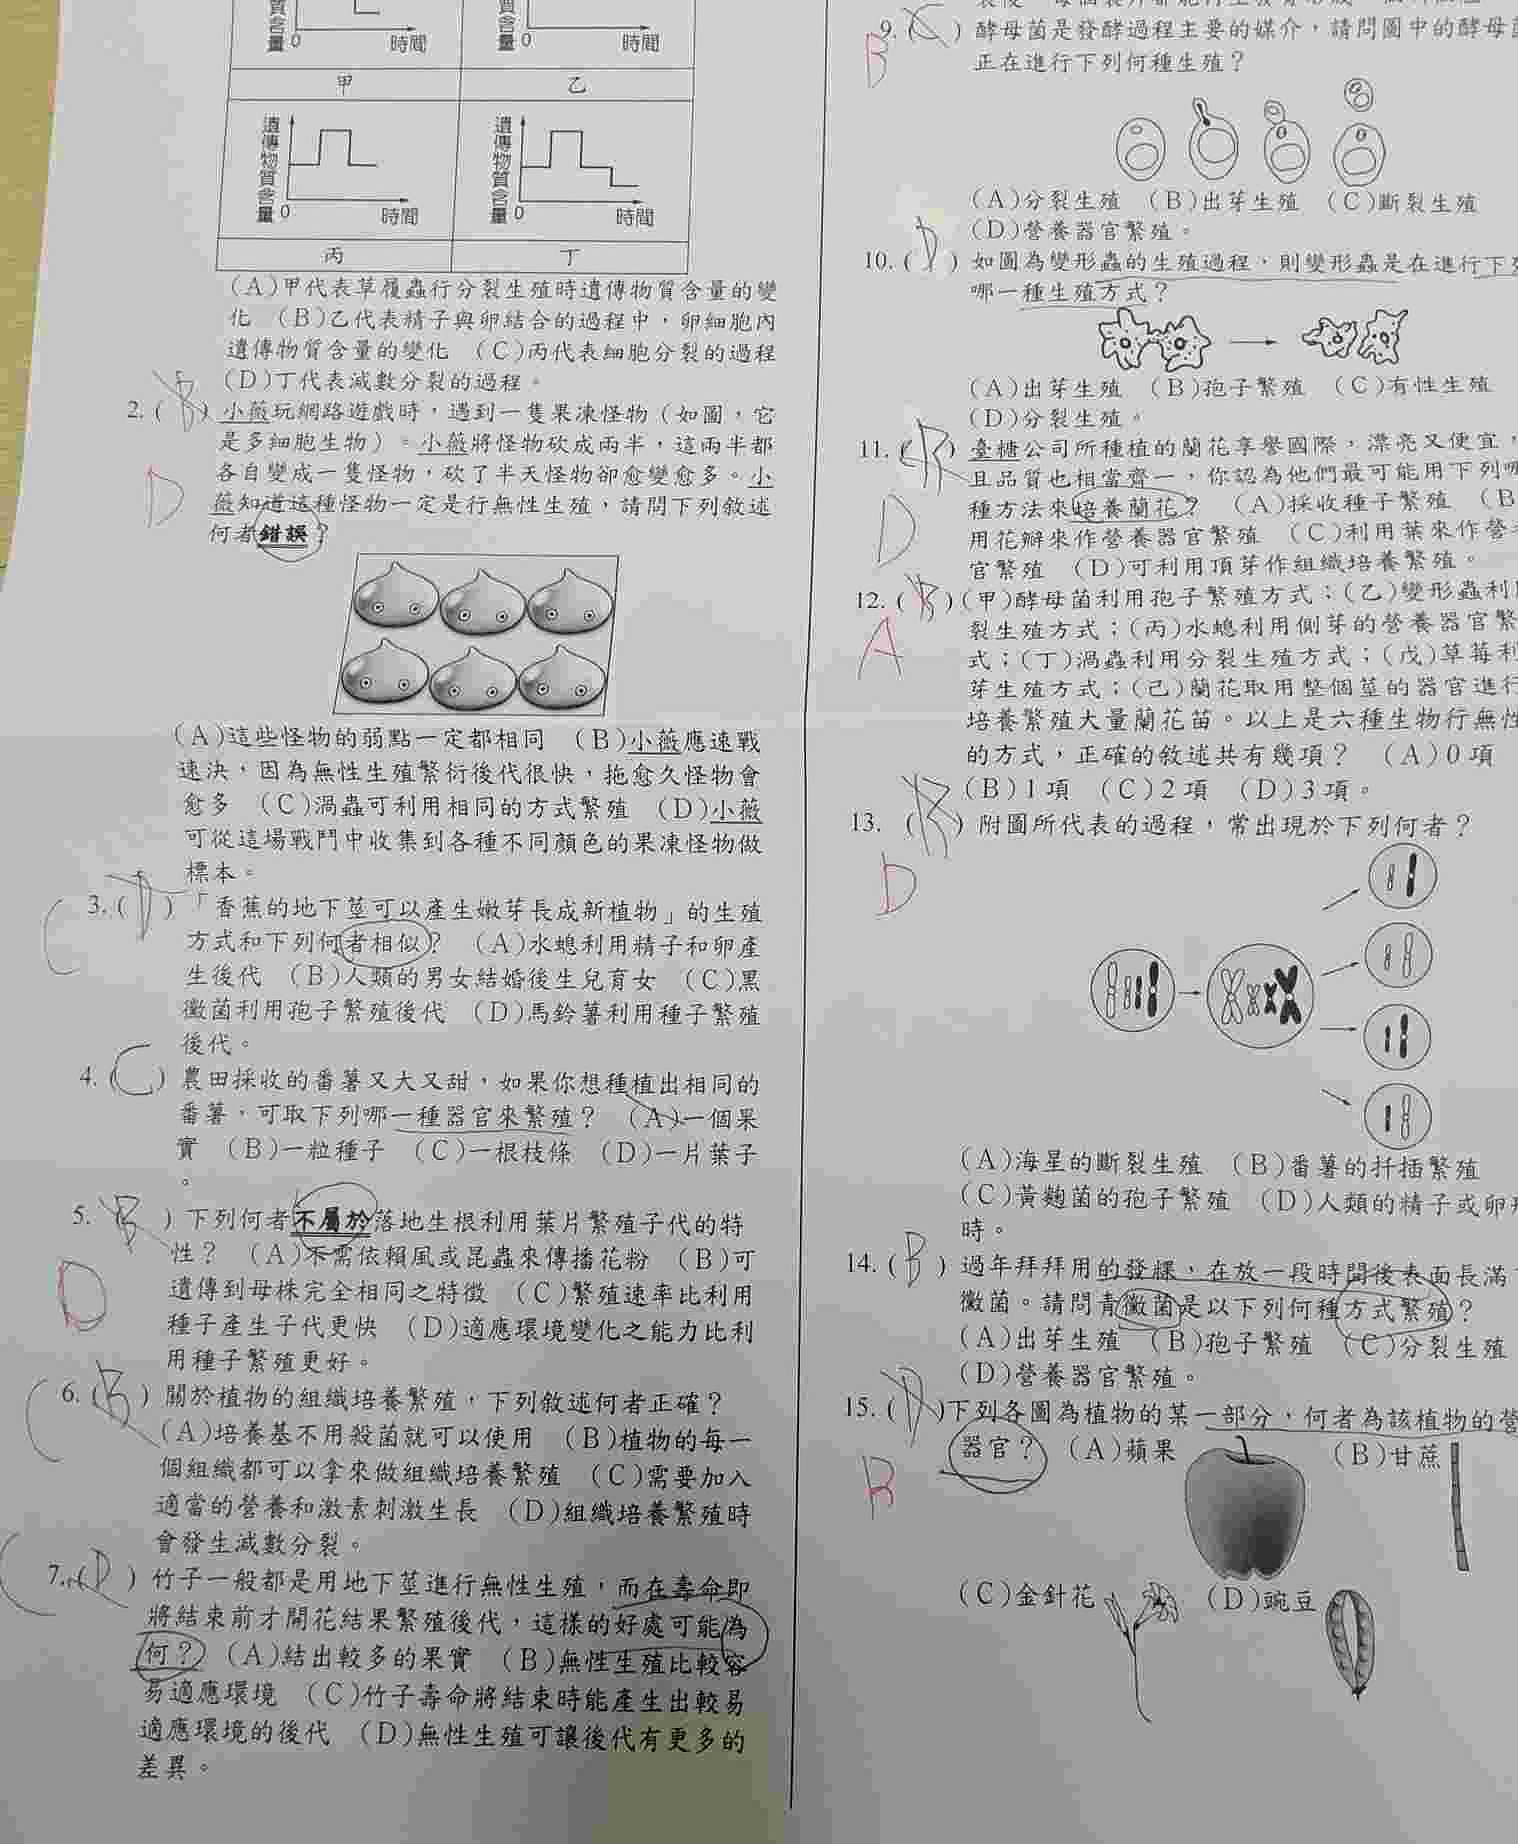 質含量
0
時間
質含量
0
時間
甲
乙
遺傳物質含量
0
時間
遺傳物質含量
0
時間
丙
丁
(A)甲代表草履蟲行分裂生殖時遺傳物質含量的變
化 (B)乙代表精子與卵結合的過程中,卵細胞內
遺傳物質含量的變化 (C)丙代表細胞分裂的過程
(D)丁代表減數分裂的過程。
2. (B) 小薇玩網路遊戲時,遇到一隻果凍怪物(如圖,它
是多細胞生物)。小薇將怪物砍成兩半,這兩半都
各自變成一隻怪物,砍了半天怪物卻愈變愈多。小
D
薇知道這種怪物一定是行無性生殖,請問下列敘述
何者錯誤?
(A)這些怪物的弱點一定都相同 (B)小薇應速戰
速決,因為無性生殖繁衍後代很快,拖愈久怪物會
愈多 (C)渦蟲可利用相同的方式繁殖 (D)小薇
可從這場戰鬥中收集到各種不同顏色的果凍怪物做
標本。
3. (D) 「香蕉的地下莖可以產生嫩芽長成新植物」的生殖
C
方式和下列何者相似? (A)水螅利用精子和卵產
生後代 (B)人類的男女結婚後生兒育女 (C)黑
黴菌利用孢子繁殖後代 (D)馬鈴薯利用種子繁殖
後代。
4. (C) 農田採收的番薯又大又甜,如果你想種植出相同的
番薯,可取下列哪一種器官來繁殖? (A)一個果
實 (B)一粒種子 (C)一根枝條 (D)一片葉子
。
5. B ) 下列何者不屬於落地生根利用葉片繁殖子代的特
性? (A)不需依賴風或昆蟲來傳播花粉 (B)可
D
遺傳到母株完全相同之特徵 (C)繁殖速率比利用
種子產生子代更快 (D)適應環境變化之能力比利
用種子繁殖更好。
6. (B) 關於植物的組織培養繁殖,下列敘述何者正確?
C
(A)培養基不用殺菌就可以使用 (B)植物的每一
個組織都可以拿來做組織培養繁殖 (C)需要加入
適當的營養和激素刺激生長 (D)組織培養繁殖時
會發生減數分裂。
7. (D) 竹子一般都是用地下莖進行無性生殖,而在壽命即
C
將結束前才開花結果繁殖後代,這樣的好處可能為
何? (A)結出較多的果實 (B)無性生殖比較容
易適應環境 (C)竹子壽命將結束時能產生出較易
適應環境的後代 (D)無性生殖可讓後代有更多的
差異。
9. (C) 酵母菌是發酵過程主要的媒介,請問圖中的酵母
B
正在進行下列何種生殖?
(A)分裂生殖 (B)出芽生殖 (C)斷裂生殖
(D)營養器官繁殖。
10. (D) 如圖為變形蟲的生殖過程,則變形蟲是在進行下
哪一種生殖方式?
(A)出芽生殖 (B)孢子繁殖 (C)有性生殖
(D)分裂生殖。
11. (B) 臺糖公司所種植的蘭花享譽國際,漂亮又便宜,
且品質也相當齊一,你認為他們最可能用下列哪
D
種方法來培養蘭花? (A)採收種子繁殖 (B
用花瓣來作營養器官繁殖 (C)利用葉來作營
官繁殖 (D)可利用頂芽作組織培養繁殖。
12. (B)(甲)酵母菌利用孢子繁殖方式;(乙)變形蟲利
A
裂生殖方式;(丙)水螅利用側芽的營養器官繁
式;(丁)渦蟲利用分裂生殖方式;(戊)草莓利
芽生殖方式;(己)蘭花取用整個莖的器官進行
培養繁殖大量蘭花苗。以上是六種生物行無性
的方式,正確的敘述共有幾項? (A)0 項
(B)1 項 (C)2 項 (D)3 項。
13. (B) 附圖所代表的過程,常出現於下列何者?
D
(A)海星的斷裂生殖 (B)番薯的扦插繁殖
(C)黃麴菌的孢子繁殖 (D)人類的精子或卵
時。
14. (B) 過年拜拜用的發粿,在放一段時間後表面長滿
黴菌。請問青黴菌是以下列何種方式繁殖?
(A)出芽生殖 (B)孢子繁殖 (C)分裂生殖
(D)營養器官繁殖。
15. (D)下列各圖為植物的某一部分,何者為該植物的營
B
器官? (A)蘋果 (B)甘蔗
(C)金針花 (D)豌豆